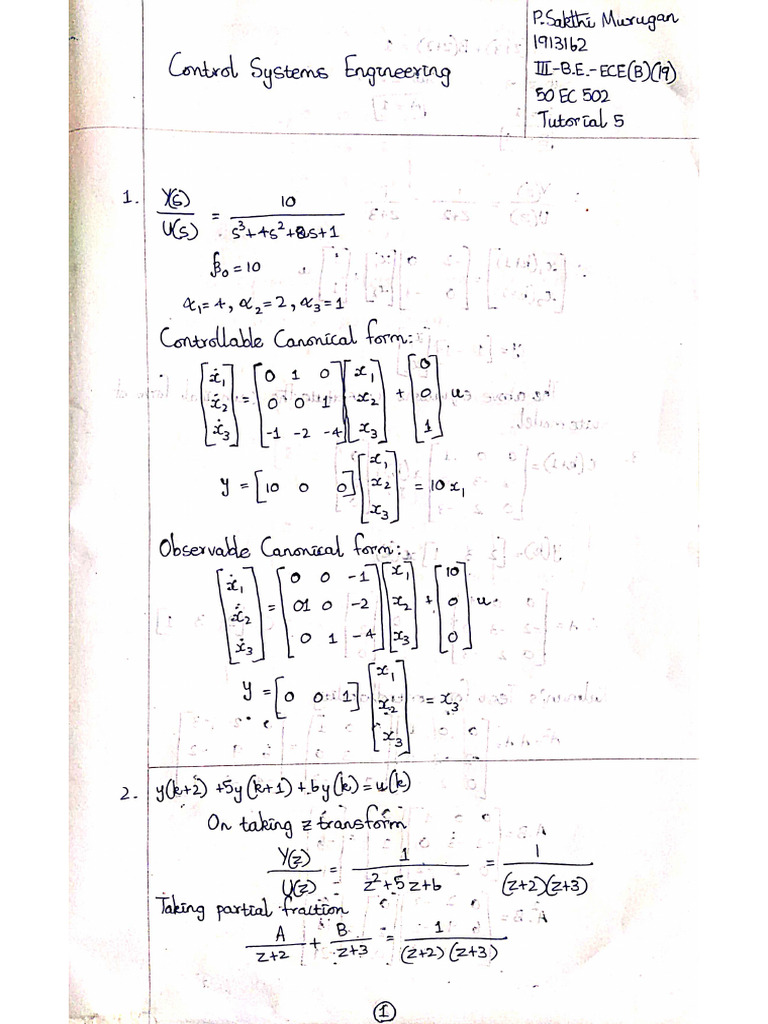 Control Systems Engineering
P.Sakthi Murugan
1913162
III-B.E.-ECE(B)(19)
50 EC 502
Tutorial 5
1. Y(s)/U(s) = 10/(s³+4s²+2s+1)
β₀=10
α₁=4, α₂=2, α₃=1
Controllable Canonical form:
[ẋ₁ ẋ₂ ẋ₃] = [0 1 0; 0 0 1; -1 -2 -4] [x₁ x₂ x₃] + [0 0 1] u
y = [10 0 0] [x₁ x₂ x₃] = 10x₁
Observable Canonical form:
[ẋ₁ ẋ₂ ẋ₃] = [0 0 -1; 1 0 -2; 0 1 -4] [x₁ x₂ x₃] + [10 0 0] u.
y = [0 0 1] [x₁ x₂ x₃] = x₃
2. y(k+2)+5y(k+1)+6y(k)=u(k)
On taking z transform
Y(z)/U(z) = 1/(z²+5z+6) = 1/((z+2)(z+3))
Taking partial fraction
A/(z+2) + B/(z+3) = 1/((z+2)(z+3))
1